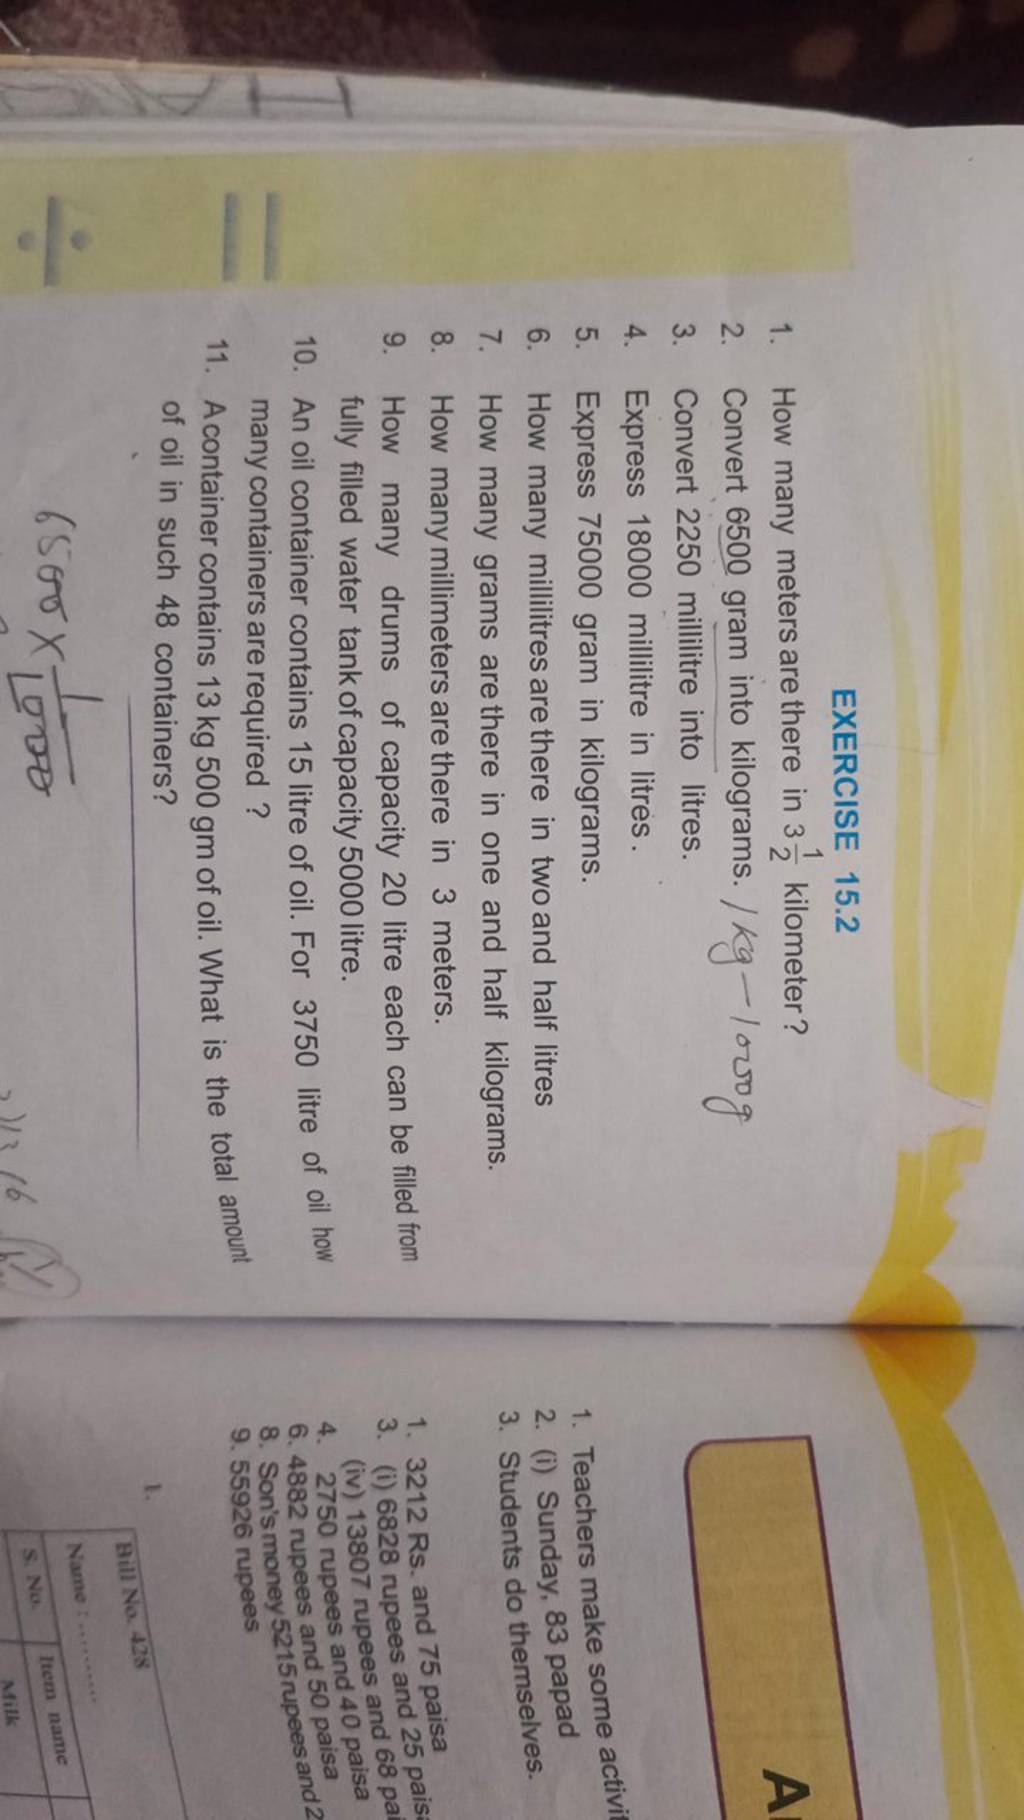 EXERCISE 15.2
1. How many meters are there in 3 1/2 kilometer?
2. Convert 6500 gram into kilograms. 1kg - 1000g
3. Convert 2250 millilitre into litres.
4. Express 18000 millilitre in litres.
5. Express 75000 gram in kilograms.
6. How many millilitres are there in two and half litres
7. How many grams are there in one and half kilograms.
8. How many millimeters are there in 3 meters.
9. How many drums of capacity 20 litre each can be filled from
fully filled water tank of capacity 5000 litre.
10. An oil container contains 15 litre of oil. For 3750 litre of oil how
many containers are required ?
11. A container contains 13 kg 500 gm of oil. What is the total amount
of oil in such 48 containers?
6500 X 1/1000
=
÷
1. Teachers make some activi
2. (i) Sunday, 83 papad
3. Students do themselves.
1. 3212 Rs. and 75 paisa
3. (i) 6828 rupees and 25 pais
(iv) 13807 rupees and 68 pai
4. 2750 rupees and 40 paisa
6. 4882 rupees and 50 paisa
8. Son's money 5215 rupees and 2
9. 55926 rupees
1.
Bill No. 428
Name : ........
S. No. Item name
Milk